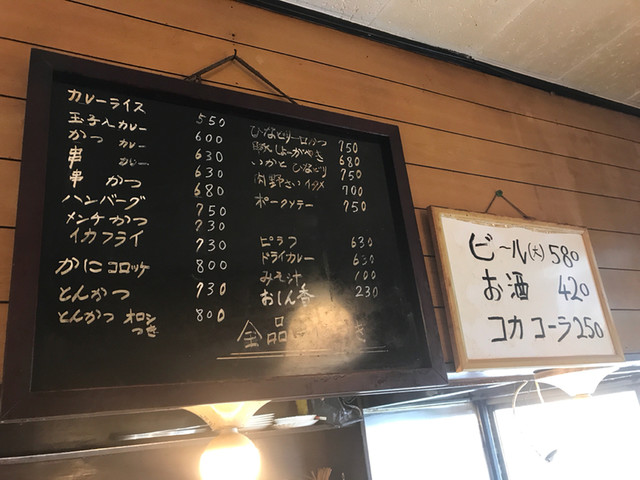 カレーライス 550
玉子入カレー 600
かつ カレー 630
串 カレー 630
串 かつ 680
ハンバーグ 750
メンチかつ 730
イカフライ 730
かにコロッケ 800
とんかつ 730
とんかつ オロシつき 800
750
豚しょーがやき 680
750
肉野さいイタメ 700
ポークソテー 750
ピラフ 630
ドライカレー 630
みそ汁 100
おしん香 230
全品
ビール(大) 580
お酒 420
コカコーラ 250